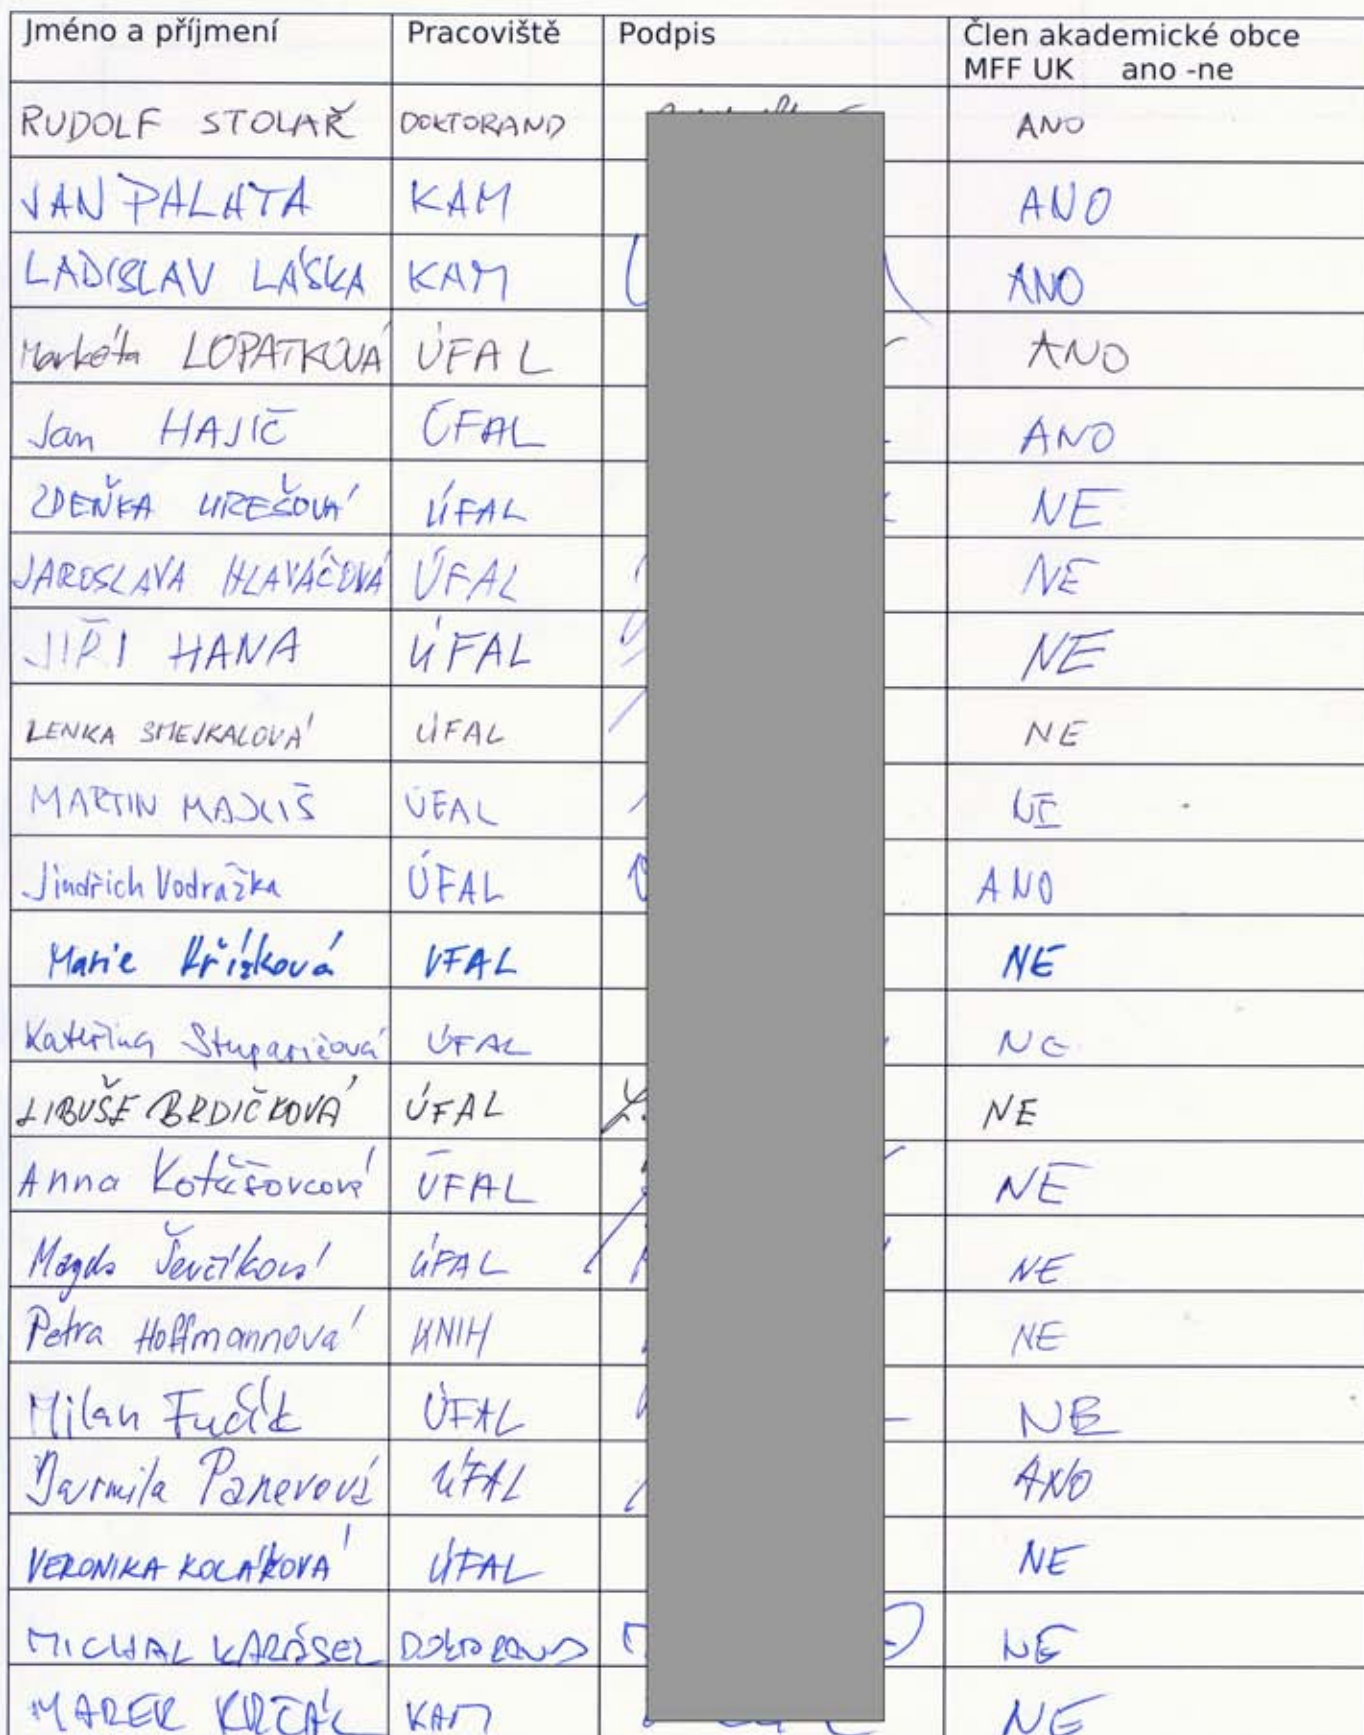 Jméno a příjmení Pracoviště Podpis Člen akademické obce
MFF UK ano -ne
RUDOLF STOLAŘ DOKTORAND ANO
JAN PALATA KAM ANO
LADISLAV LÁSKA KAM ANO
Markéta LOPATKOVÁ ÚFAL ANO
Jan HAJIČ ÚFAL ANO
ZDEŇKA UREŠOVÁ ÚFAL NE
JAROSLAVA HLAVÁČOVÁ ÚFAL NE
JIŘÍ HANA ÚFAL NE
LENKA SMEJKALOVÁ ÚFAL NE
MARTIN MAJLIŠ ÚFAL NE
Jindřich Vodrážka ÚFAL ANO
Marie Křížková ÚFAL NE
Kateřina Stuparičová ÚFAL NE
LIBUŠE BRDIČKOVÁ ÚFAL NE
Anna Kotěšovcová ÚFAL NE
Magda Ševčíková ÚFAL NE
Petra Hoffmannová KNIH NE
Milan Fučík ÚFAL NE
Jarmila Panevová ÚFAL ANO
VERONIKA KOLÁŘOVÁ ÚFAL NE
MICHAL KARÁSEK DOKTORAND NE
MAREK KRČÁL KAM NE